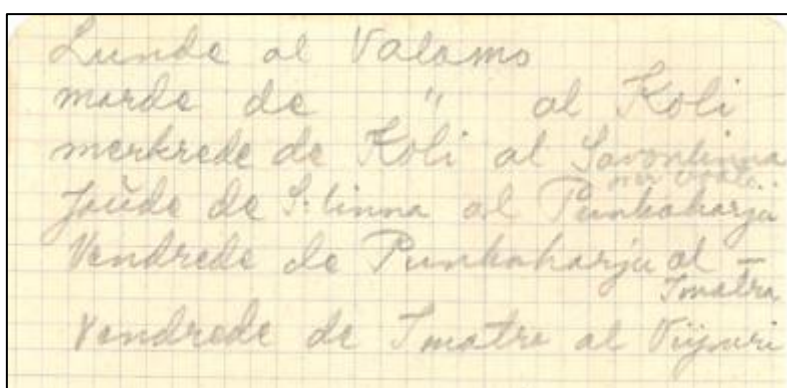 Lunde al Valamo
marde de " al Koli
merkrede de Koli al Savonlinna
ĵaŭde de S:linna al Punkaharju
Vendrede de Punkaharju al –
Imatra
Vendrede de Imatra al Viipuri